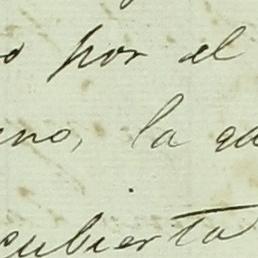 o por el
no, la ca
cubierta